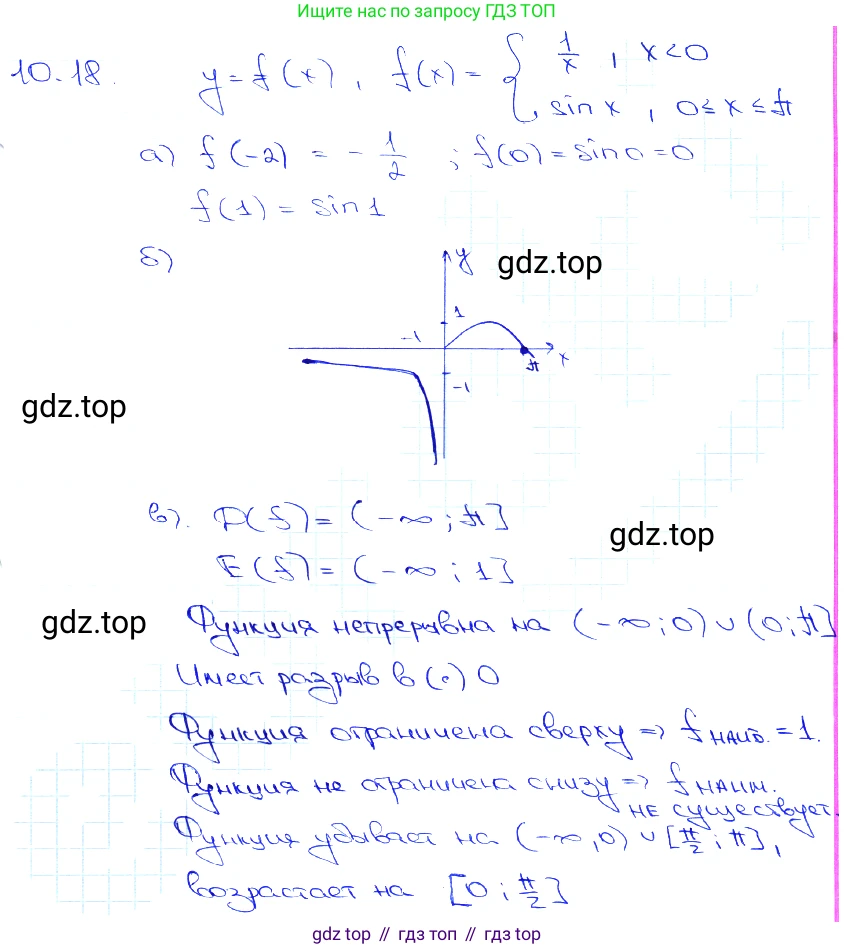 Ищите нас по запросу ГДЗ ТОП
10.18. y = f(x), f(x) = { 1/x, x<0
sin x, 0≤x≤π
а) f(-2) = -1/2; f(0) = sin0 = 0
f(1) = sin1
б)
y
gdz.top
1
-1
x
π
-1
gdz.top
в). D(f) = (-∞; π]
gdz.top
E(f) = (-∞; 1]
gdz.top
Функция непрерывна на (-∞; 0) ∪ (0; π]
Имеет разрыв в (.) 0
Функция ограничена сверху => f НАИБ. = 1.
Функция не ограничена снизу => f НАИМ.
НЕ существует.
Функция убывает на (-∞, 0) ∪ [π/2; π],
возрастает на [0; π/2]
gdz.top // гдз топ // gdz.top